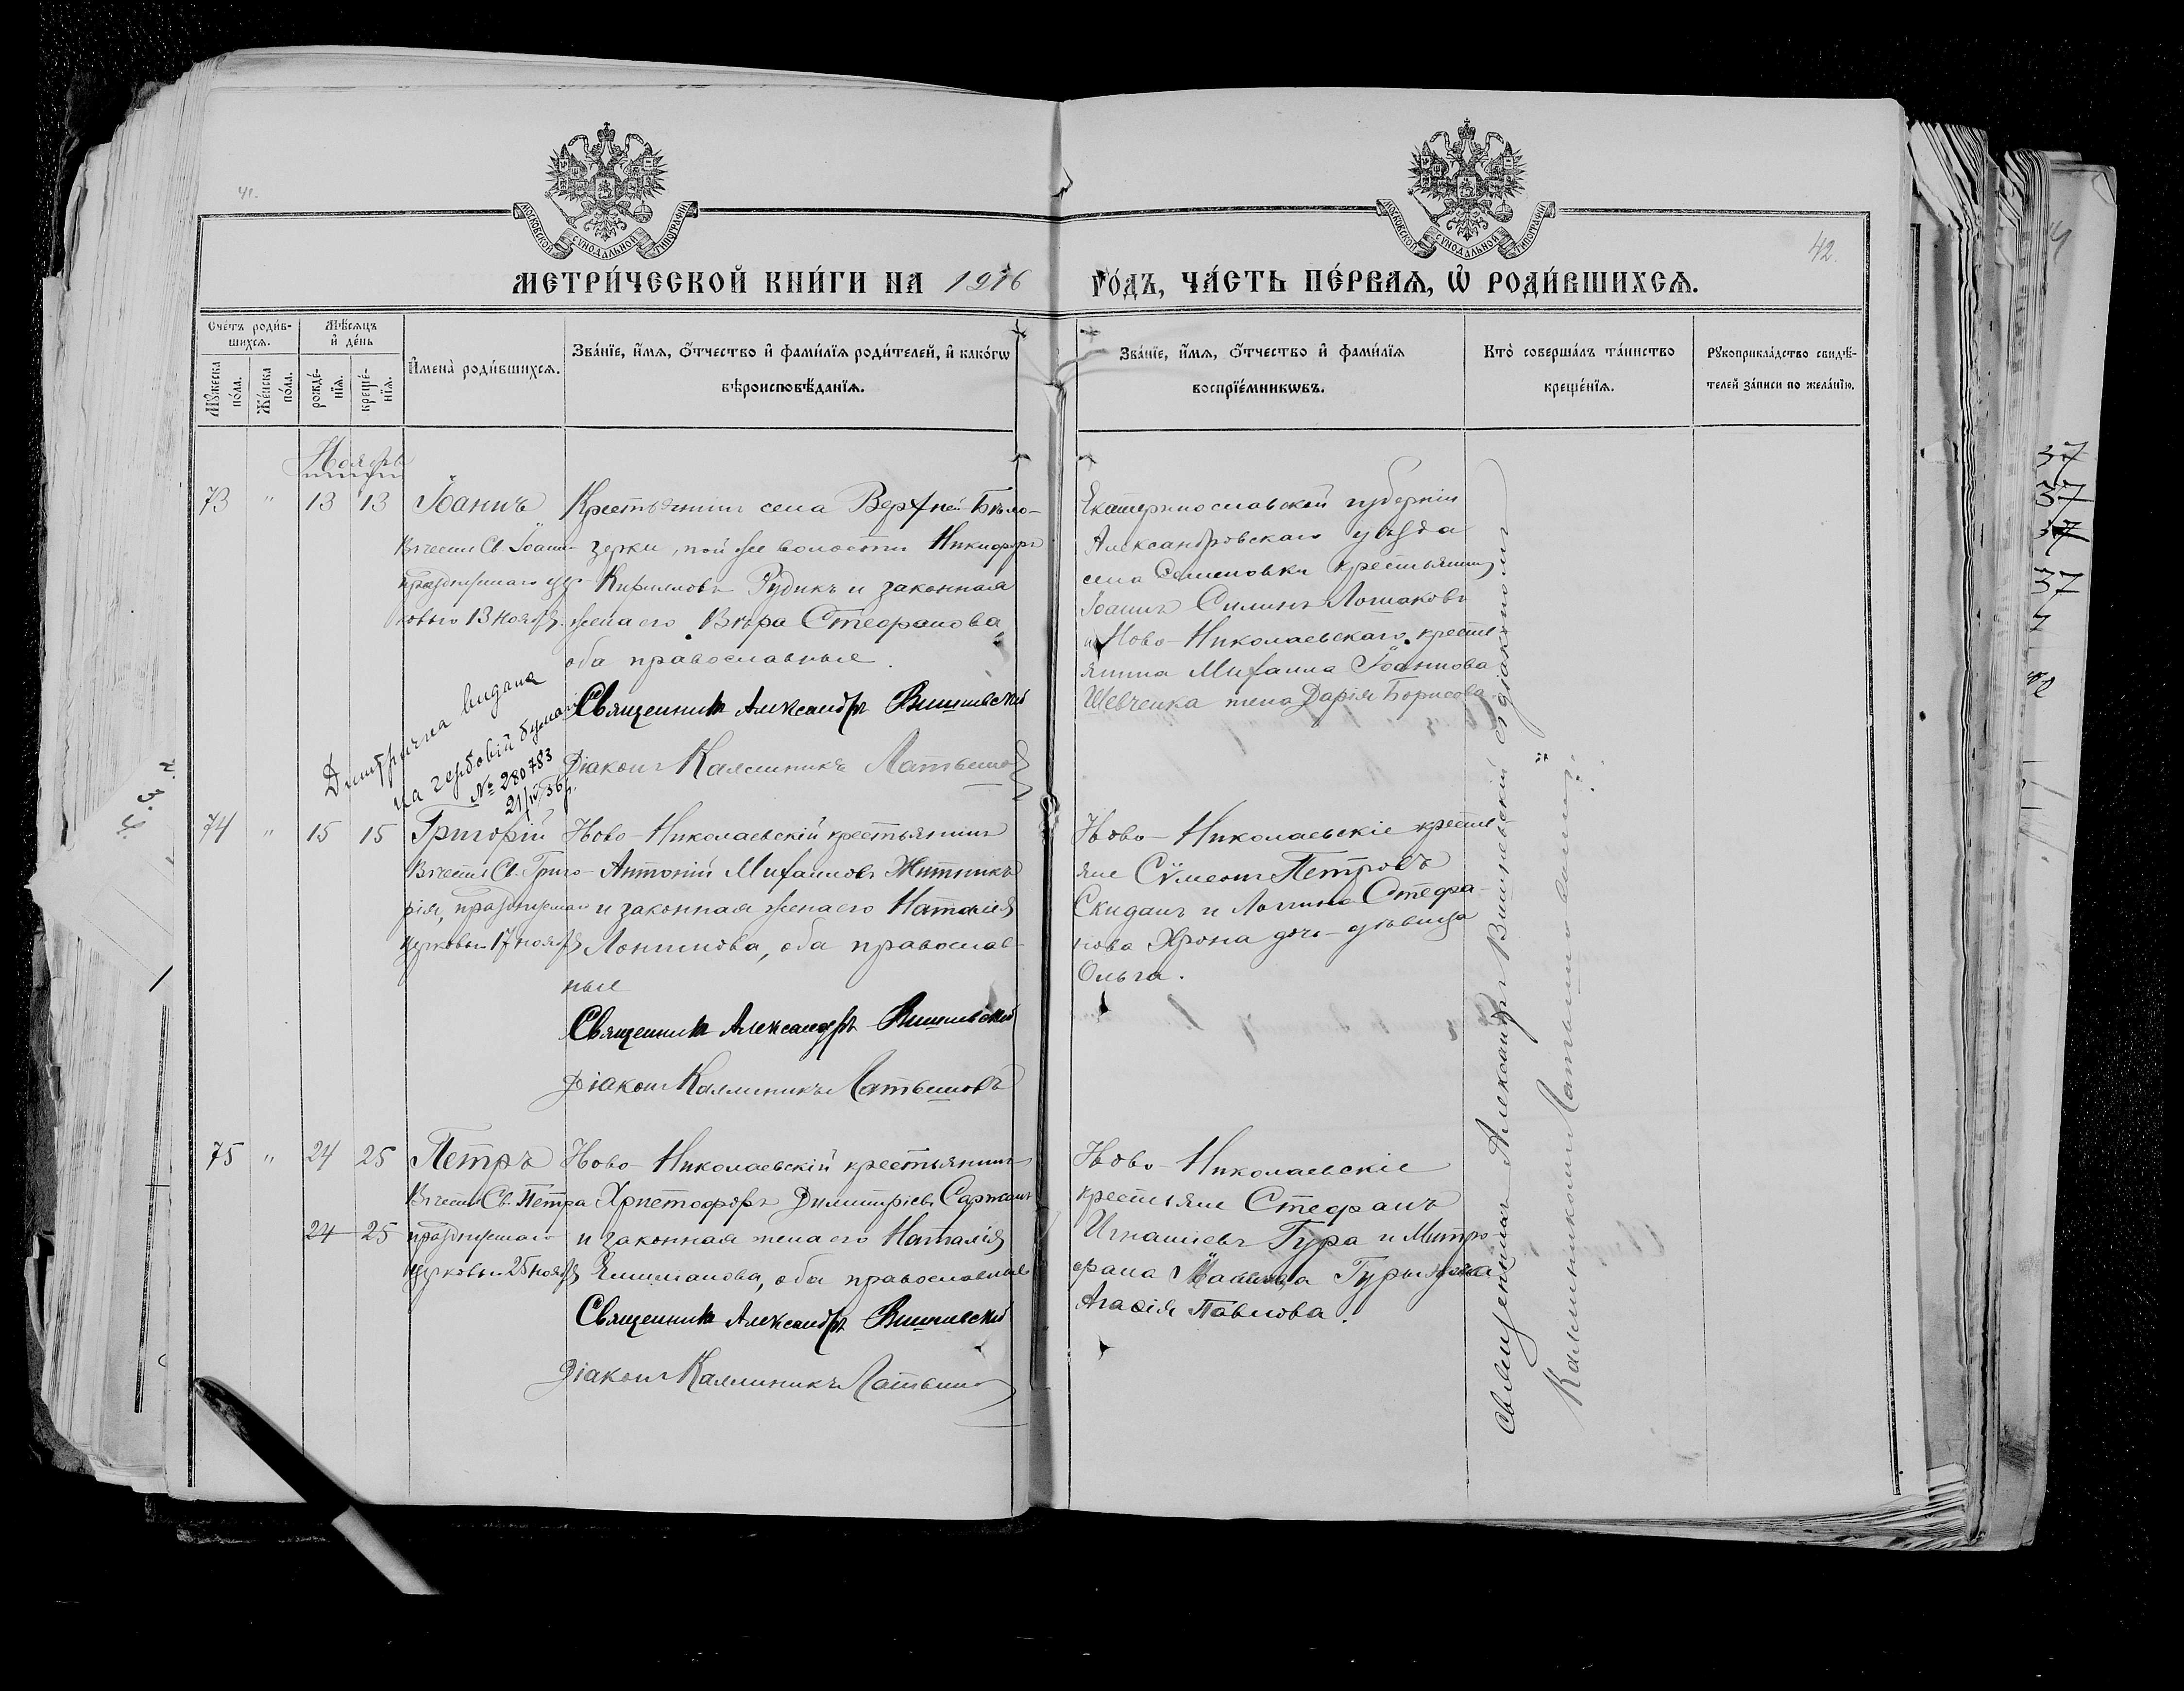 41.
42.
МОСКОВСКОЙ СѴНОДАЛЬНОЙ ТИПОГРАФІИ
МОСКОВСКОЙ СѴНОДАЛЬНОЙ ТИПОГРАФІИ
МЕТРИ́ЧЕСКОЙ КНИ́ГИ НА 1916 ГО́ДЪ, ЧА́СТЬ ПЕ́РВАѦ, Ѽ РОДИ́ВШИХСѦ.
Счетъ роди́в-
шихсѧ.
Мѣ́сѧцъ
и҆ де́нь
Мꙋ́жеска
по́ла.
Же́нска
по́ла.
рожде́-
нїѧ.
креще́-
нїѧ.
И҆мена̀ роди́вшихсѧ.
Зва́нїе, и҆́мѧ, ѻ҆́тчество и҆ фами́лїѧ роди́телей, и҆ како́гѡ
вѣроисповѣ́данїѧ.
Зва́нїе, и҆́мѧ, ѻ҆́тчество и҆ фами́лїѧ
воспрїе́мникѡвъ.
Кто̀ соверша́лъ та́инство
креще́нїѧ.
Рꙋкоприкла́дство свидѣ́-
телей за́писи по жела́нїю.
Ноябрь
73 " 13 13 Іоаннъ
Въ честь Св. Іоанн
празднуемаго цер
ковью 13 ноября.
Крестьянинъ села Верхней Бѣло-
зерки, той же волости Никифоръ
Кирилловъ Рудикъ и законная
жена его Вѣра Стефанова
оба православные.
Священникъ Александръ Вишневскій
Діаконъ Каллиникъ Латышовъ
Екатеринославской губерніи
Александровскаго уѣзда
села Семеновки крестьянинъ
Іоаннъ Силинъ Лошаковъ
и Ново-Николаевскаго крестья
янина Михаила Іоаннова
Шевченка жена Дарія Борисова
видана
на гербовій бумазі
№ 280783
21/IV 36 р.
74 " 15 15 Григорій
Въ честь Св. Григо-
рія, празднуемаго
церковью 17 ноября
Ново-Николаевскій крестьянинъ
Антоній Михаиловъ Житникъ
и законная жена его Наталія
Логинова, оба православ-
ные
Священникъ Александръ Вишневскій
Діаконъ Каллиникъ Латышовъ
Ново-Николаевскіе крестья-
яне Сѵмеонъ Петровъ
Скиданъ и Логина Стефа-
нова Хрона дочь-дѣвица
Ольга.
75 " 24 25 Петръ
Въ честь Св. Петра
24 25 празднуемаго
церковью 25 ноября
Ново-Николаевскій крестьянинъ
Христофоръ Димитріевъ Саржанъ
и законная жена его Наталія
Емиліанова, оба православные
Священникъ Александръ Вишневскій
Діаконъ Каллиникъ Латышовъ
Ново-Николаевскіе
крестьяне Стефанъ
Игнатіевъ Гура и Митро
фана Гуры жена
Агафія Павлова.
Священникъ Александръ Вишневскій съ діакономъ
Каллиникомъ Латышовымъ.
37
37
37
37